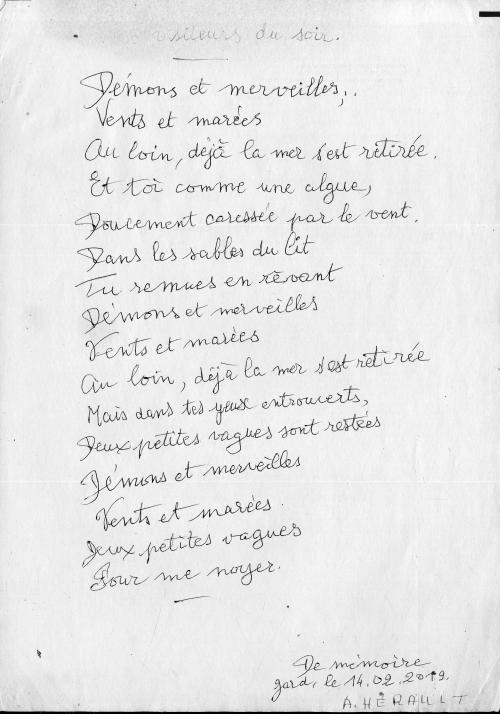 visiteurs du soir.
Démons et merveilles,.
Vents et marées
Au loin, déjà la mer s'est rétirée.
Et toi comme une algue,
Doucement caressée par le vent.
Dans les sables du lit
Tu remues en rêvant
Démons et merveilles
Vents et marées
Au loin, déjà la mer s'est rétirée
Mais dans tes yeux entrouverts,
Deux petites vagues sont restées
Démons et merveilles
Vents et marées.
Deux petites vagues
Pour me noyer.
De mémoire
gard, le 14.02.2019.
A. HERAULT